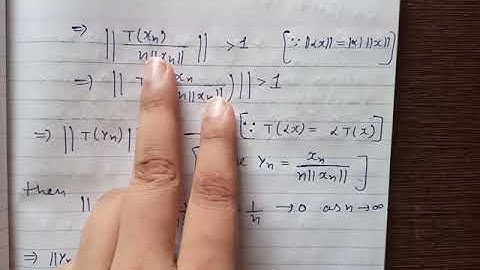 ⇒ || T(xₙ) / n||xₙ|| || > 1 [∵ ||αx|| = |α| ||x||]
⇒ || T( xₙ / n||xₙ|| ) || > 1
⇒ || T(yₙ) | [∵ T(αx) = αT(x)]
yₙ = xₙ / n||xₙ|| ]
then
|| 1/n → 0 as n → ∞
⇒ ||yₙ